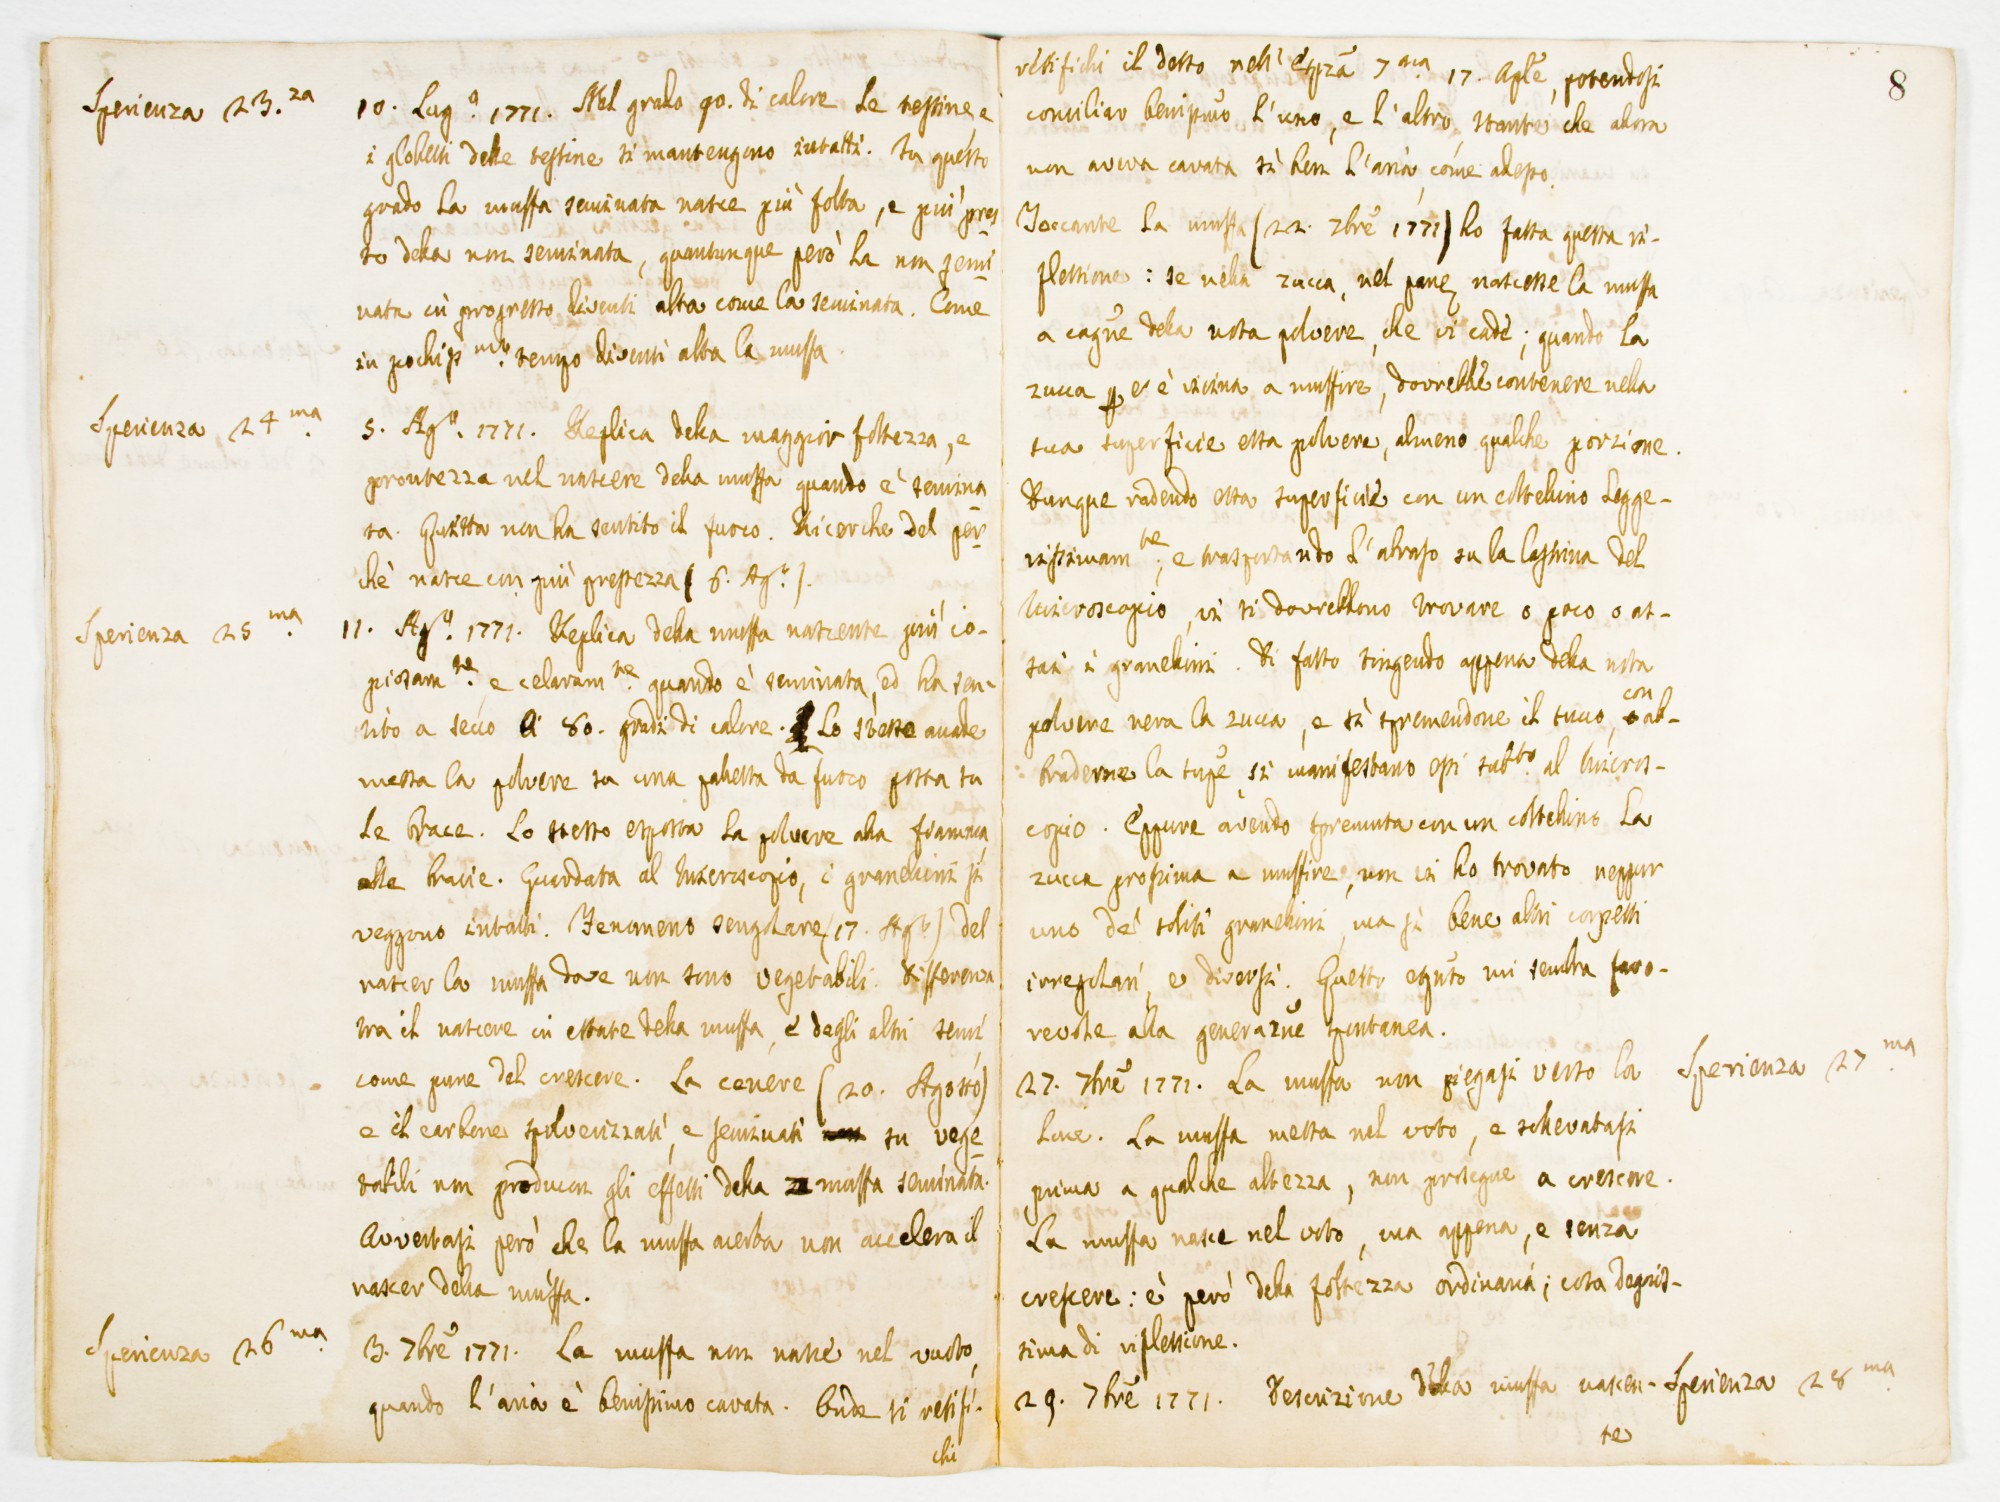 Sperienza 23.za
10. Lugo 1771. Nel grado 90. di calore le testine e
i globetti delle testine si mantengono intatti. In questo
grado la muffa seminata nasce più folta, e più pres
to della non seminata, quantunque però la non semi
nata in progresso diventi alta come la seminata. Come
in pochissmo. tempo diventi alta la muffa.
Sperienza 24ma.
5. Ago. 1771. Replica della maggior foltezza, e
prontezza nel nascere della muffa quando è semina
ta. Questa non ha sentito il fuoco. Ricerche del per
chè nasce con più prestezza (6. Ago.).
Sperienza 25ma.
11. Ago. 1771. Replica della muffa nascente più co-
piosamte. e celeramte. quando è seminata, ed ha sen-
tito a secco li 80. gradi di calore. Lo stesse accade
messa la polvere su una paletta da fuoco posta su
le brace. Lo stesso esposta la polvere alla fiamma
alle bracie. Guardata al Microscopio, i granellini si
veggono intatti. Fenomeno singolare (17. Ago.) del
nascer la muffa dove non sono vegetabili. Differenza
tra il nascere in estate della muffa, e degli altri semi
come pure del crescere. La cenere (20. Agosto)
e il carbone spolverizzati, e seminati su vege
tabili non producon gli effetti della muffa seminata.
Avvertasi però che la muffa acerba non accelera il
nascer della muffa.
Sperienza 26ma.
3. 7bre 1771. La muffa non nasce nel vuoto,
quando l'aria è benissimo cavata. Onde si retifi-
chi
8
retifichi il detto nell'Esprza 7ma. 17. Aple, potendosi
conciliar benissmo l'uno, e l'altro, stante che allora
non aveva cavata sì ben l'aria, come adesso.
Toccante la muffa (22. 7bre 1771) ho fatta questa ri-
flessione: se nella zucca, nel pane, nascesse la muffa
a cagne della nota polvere, che vi cade; quando la
zucca p es è vicina a muffire, dovrebbe contenere nella
sua superficie essa polvere, almeno qualche porzione.
Dunque radendo essa superficie con un coltellino legge-
rissimamte, e trasportando l'abraso su la lastrina del
Microscopio, vi si dovrebbono trovare o poco o as-
sai i granellini. Di fatto tingendo appena della nota
polvere nera la zucca, e sì spremendone il succo, con ab-
braderne la supe, si manifestano essi subto. al Micros-
copio. Eppure avendo spremuta con un coltellino la
zucca prossima a muffire, non vi ho trovato neppur
uno de' soliti granellini, ma sì bene altri corpetti
irregolari, e diversi. Questo esputo mi sembra favo-
revole alla generazne spontanea.
27. 7bre 1771. La muffa non piegasi verso la
Sperienza 27ma.
luce. La muffa messa nel voto, e sollevatasi
prima a qualche altezza, non prosegue a crescere.
La muffa nasce nel voto, ma appena, e senza
crescere: è però della foltezza ordinaria; cosa degnis-
sima di riflessione.
29. 7bre 1771. Descrizione della muffa nascen-
Sperienza 28ma.
te